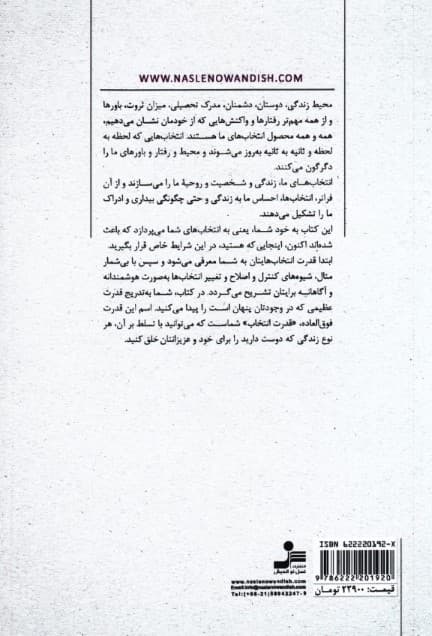 WWW.NASLENOWANDISH.COM
محیط زندگی، دوستان، دشمنان، مدرک تحصیلی، میزان ثروت، باورها
و از همه مهم‌تر رفتارها و واکنش‌هایی که از خودمان نشان می‌دهیم،
همه و همه محصول انتخاب‌های ما هستند. انتخاب‌هایی که لحظه به
لحظه و ثانیه به ثانیه به‌روز می‌شوند و محیط و رفتار و باورهای ما را
دگرگون می‌کنند.
انتخاب‌های ما، زندگی و شخصیت و روحیهٔ ما را می‌سازند و از آن
فراتر، انتخاب‌ها، احساس ما به زندگی و حتی چگونگی بیداری و ادراک
ما را تشکیل می‌دهند.
این کتاب به خود شما، یعنی به انتخاب‌های شما می‌پردازد که باعث
شده‌اند اکنون، اینجایی که هستید، در این شرایط خاص قرار بگیرید.
ابتدا قدرت انتخاب‌هایتان به شما معرفی می‌شود و سپس با بی‌شمار
مثال، شیوه‌های کنترل و اصلاح و تغییر انتخاب‌ها به‌صورت هوشمندانه
و آگاهانه برایتان تشریح می‌گردد. در کتاب، شما به‌تدریج قدرت
عظیمی که در وجودتان پنهان است را پیدا می‌کنید. اسم این قدرت
فوق‌العاده، «قدرت انتخاب» شماست که می‌توانید با تسلط بر آن، هر
نوع زندگی که دوست دارید را برای خود و عزیزانتان خلق کنید.
ISBN 622220192-X
9 786222 201920
قیمت: ۲۲۹۰۰ تومان
انتشارات
نسل نو اندیش
www.naslenowandish.com
Email:info@naslenowandish.com
Tel:(+98-21)88942247-9